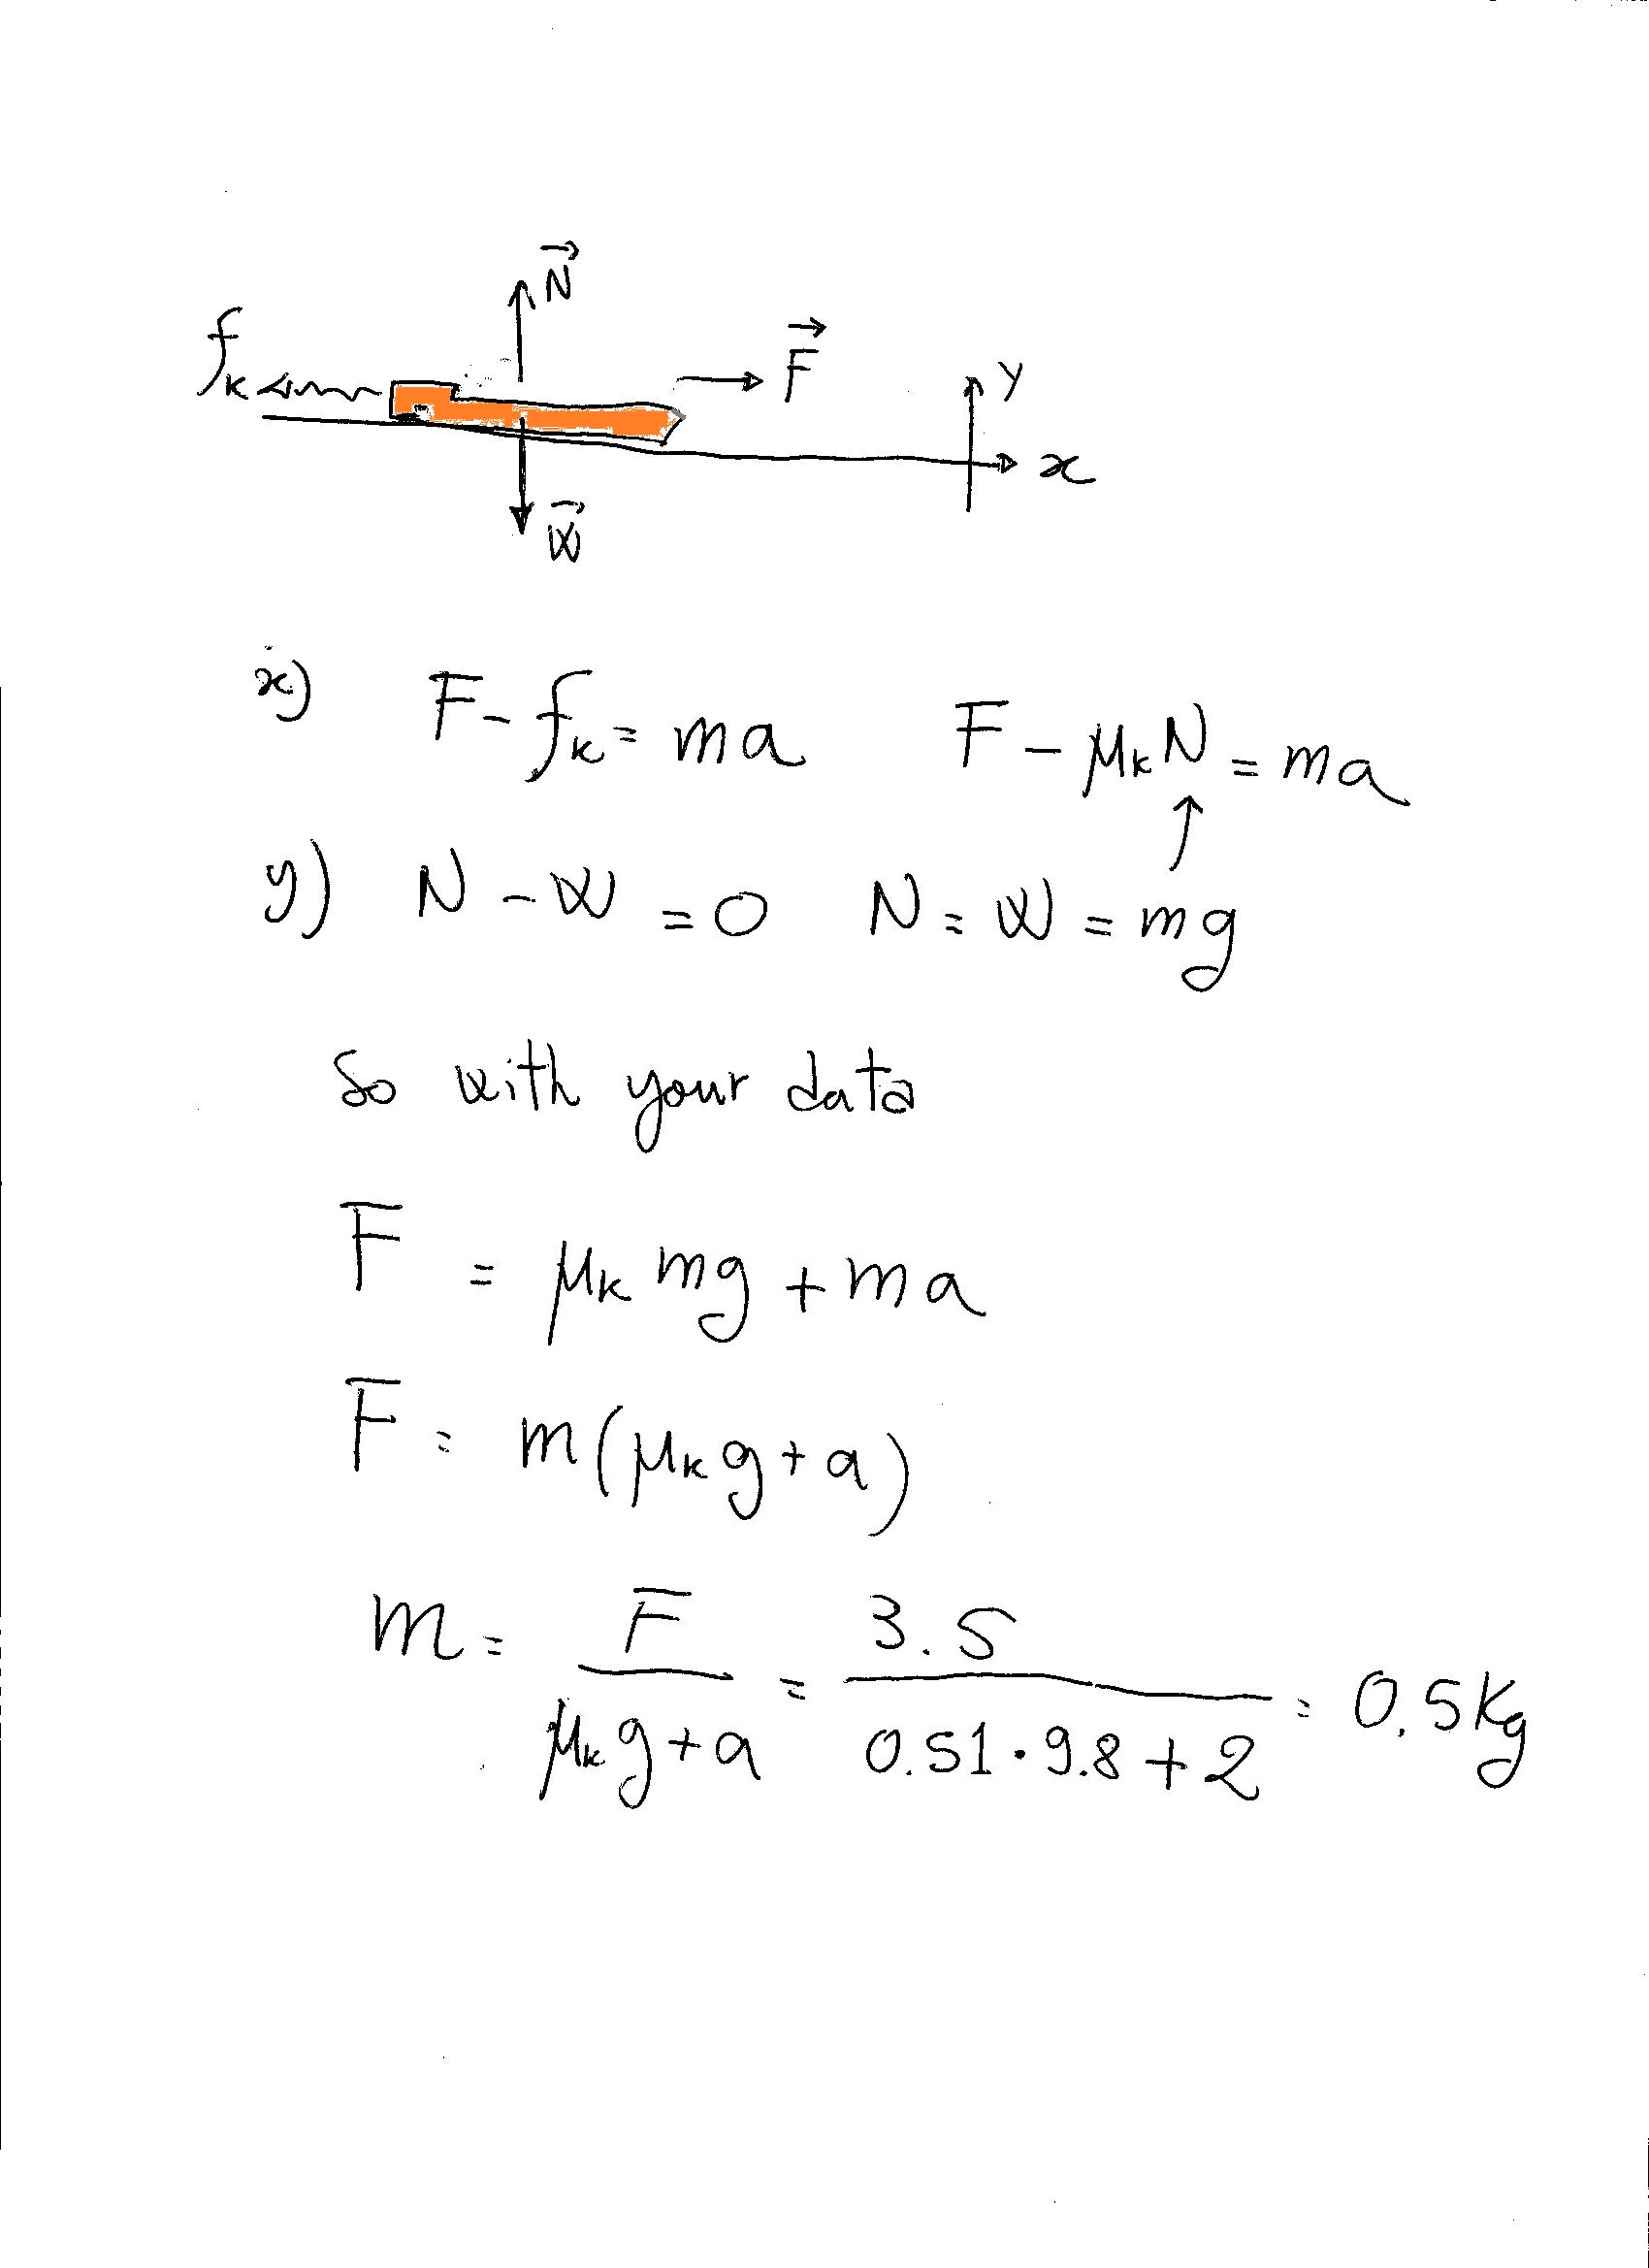 N⃗
f_k F⃗
y
x
W⃗
x) F - f_k = ma F - μ_k N = ma
↑
y) N - W = 0 N = W = mg
So with your data
F = μ_k mg + ma
F = m(μ_k g + a)
m = F / (μ_k g + a) = 3.5 / (0.51 · 9.8 + 2) = 0.5 kg